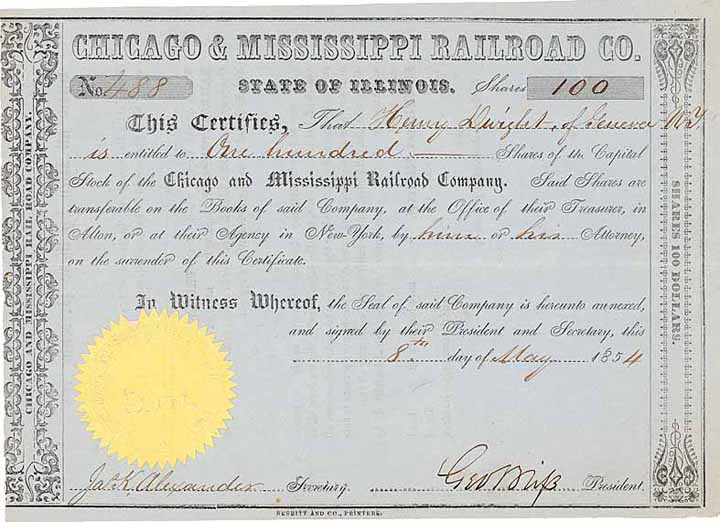 CHICAGO & MISSISSIPPI RAILROAD CO.
No. 488 STATE OF ILLINOIS. Shares 100
This Certifies, That Henry Dwight, of Geneva N.Y.
is entitled to One hundred Shares of the Capital
Stock of the Chicago and Mississippi Railroad Company. Said Shares are
transferable on the Books of said Company, at the Office of their Treasurer, in
Alton, or at their Agency in New-York, by him or his Attorney,
on the surrender of this Certificate.
In Witness Whereof, the Seal of said Company is hereunto annexed,
and signed by their President and Secretary, this
8th day of May 1854
Jas. K. Alexander Secretary. Geo Bliss President.
NESBITT AND CO., PRINTERS.
CHICAGO AND MISSISSIPPI RAIL ROAD COMPANY.
SHARES 100 DOLLARS.